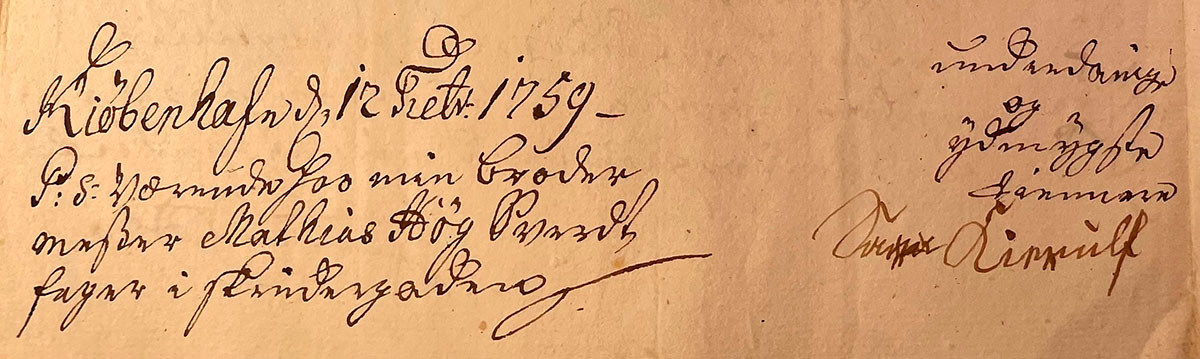 Kiöbenhafn d. 12 Febr. 1759 –
P: S: Værende hos min broder
meßer Mathias Høg Sverdt
feger i skindergaden
underdanige
og
ydmygste
tiennere
Kierulf